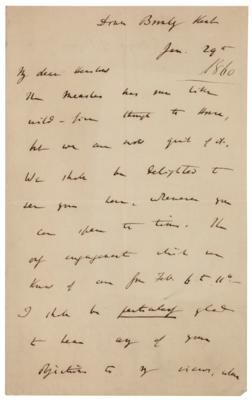 Down Bromley Kent
Jan. 29th
1860
My dear Henslow
The Measles has run like
wild-fire through the House,
but we are now quit of it.
We shall be delighted to
see you here, whenever you
can spare the time. The
only engagement which we
know of are for Feb. 6 to 11th
I shall be particularly glad
to hear any of your
objections to my views, when